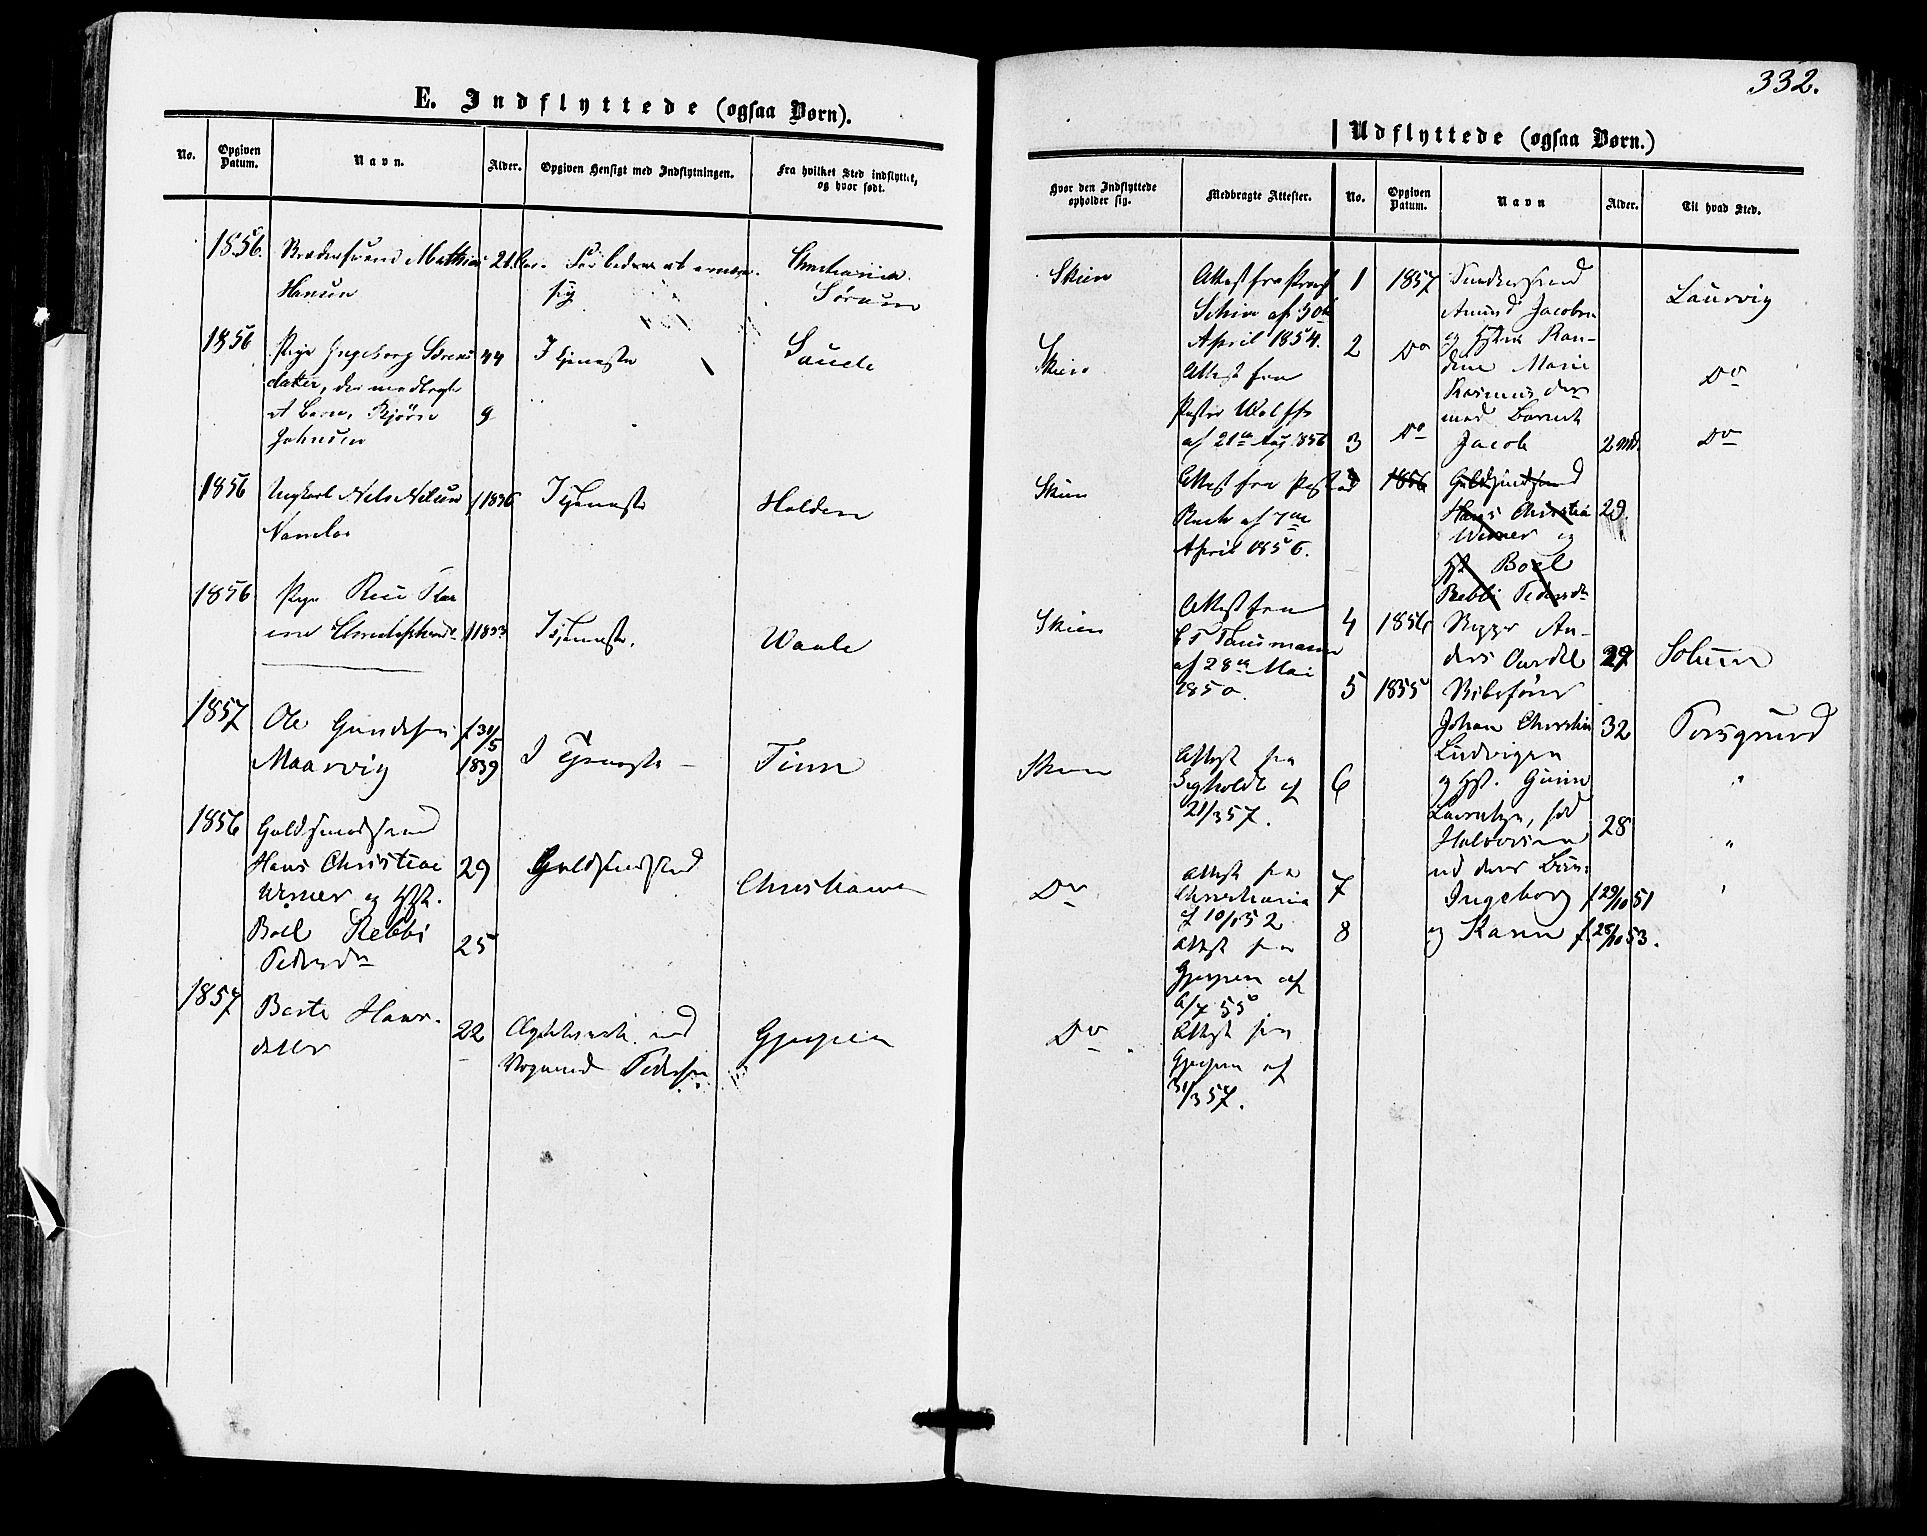 332.
E. Indflyttede (ogsaa Børn).
No.
Opgiven Datum.
Navn.
Alder.
Opgiven Hensigt med Indflytningen.
Fra hvilket Sted indflyttet,
og hvor født.
1856.
Mathias
Hansen
21
For bedre at ernære
sig
Christiania
Sørum
1856
Pige Ingeborg Sørens
datter, der medbragte
et Barn, Bjørn
Johnsen
44
9
I Tjeneste
Saude
1856
Ungkarl Nels Nelsen
Namlos
f 1836
I Tjeneste
Holden
1856
Pige
f 1833
I Tjeneste.
Waale
1857
Ole Gundesen
Maarvig
f 31/5
1839
I Tjeneste
Tinn
1856
Guldsmedsvend
Hans Christian
Werner og Hst.
Boel Rebbi
Pedersdr
29
25
Guldsmedsvend
Christiania
1857
Berte Hans-
datter
22
Ægteskab med
Pedersen
Gjerpen
Udflyttede (ogsaa Børn.)
Hvor den Indflyttede
opholder sig.
Medbragte Attester.
No.
Opgiven
Datum.
Navn
Alder.
Til hvad Sted.
Skien
Attest fra Provst
Schive af 30te
April 1854.
Skien
Attest fra
Pastor Wolff
af 21de Aug. 1856
Skien
Attest fra Pastor
Buch af 7de
April 1856.
Skien
Attest fra
af 28de Mai
1850.
Skien
Attest fra
af
21/3 57.
Do
Attest fra
Christiania
af 10/10 52
Attest fra
Gjerpen af
6/7 55
Do
Attest fra
Gjerpen af
31/3 57.
1
1857
Amund Jacobsen
Laurvig
2
Do
og Hstru Ran-
dine Marie
Rasmusdr
Do
3
Do
med Barnet
Jacob
2 Md.
Do
1856
Guldsmedsvend
Hans Christian
Werner og
Hst Boel
Rebbi Pedersdr
29
4
1856
An-
ders
29
Solum
5
1855
Johan Christian
Ludvigsen
32
Porsgrund
6
og Hst. Gunn
Laurentze, fød
Halvorsen
28
"
7
med deres Børn
Ingeborg
f 29/10 51
"
8
og Karen
f. 28/10 53.